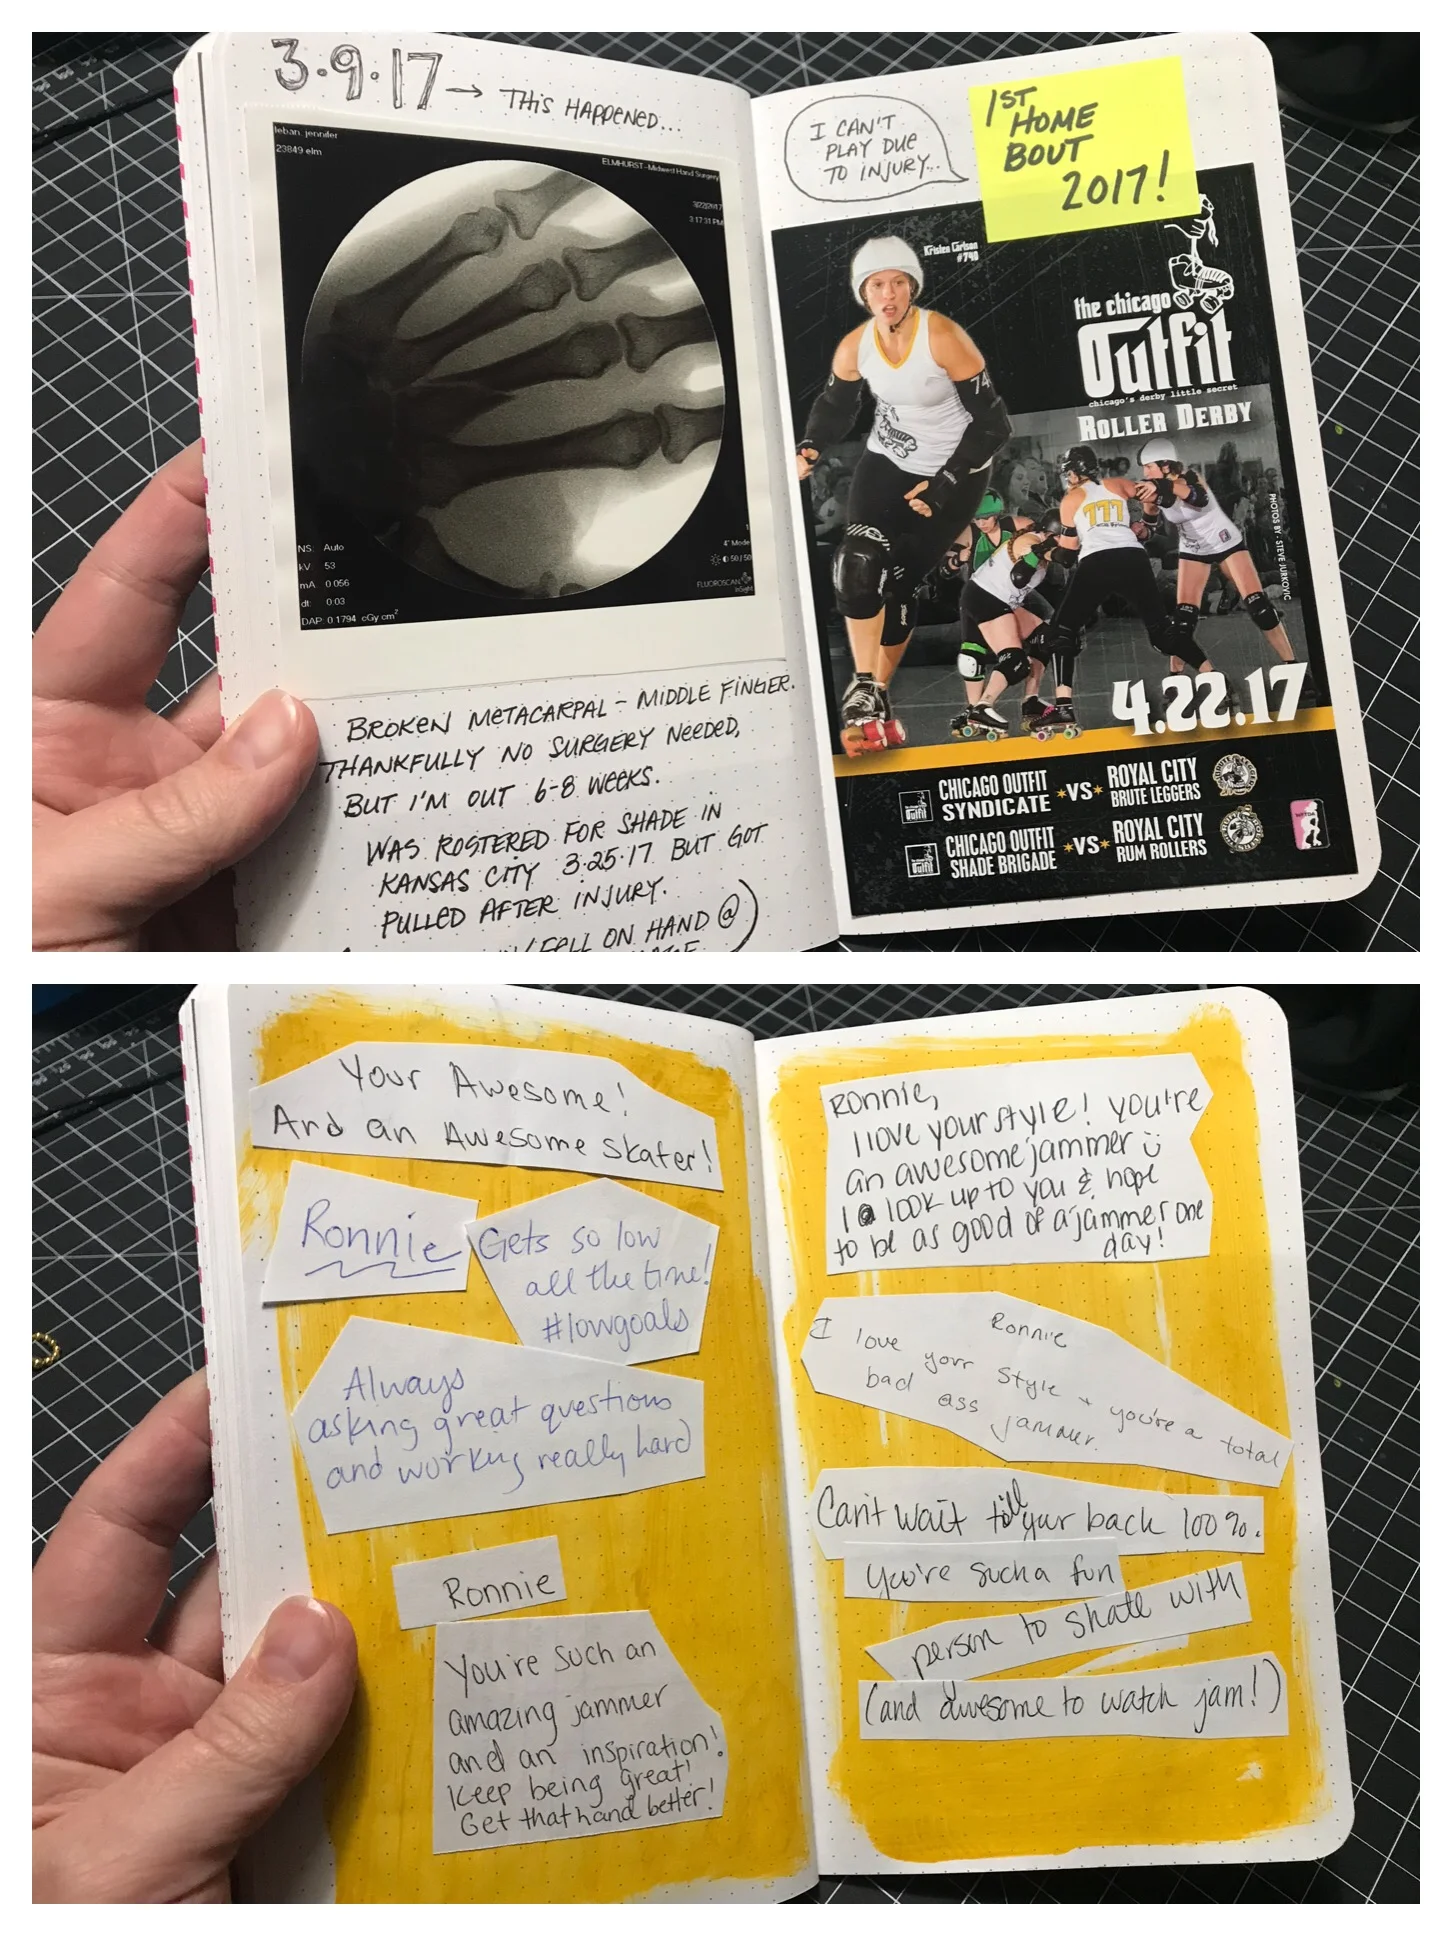 3.9.17 → THIS HAPPENED...
leban, jennifer
23849 elm
ELMHURST--Midwest Hand Surgery
3/22/2017
3:17:31 PM
NS: Auto
kV 53
mA 0.056
dt: 0:03
DAP: 0.1794 cGy cm²
1
4" Mode
50 / 50
FLUOROSCAN
InSight
BROKEN METACARPAL - MIDDLE FINGER.
THANKFULLY NO SURGERY NEEDED,
BUT I'M OUT 6-8 WEEKS.
WAS ROSTERED FOR SHADE IN
KANSAS CITY 3.25.17 BUT GOT
PULLED AFTER INJURY.
FALL ON HAND @
I CAN'T
PLAY DUE
TO INJURY...
1ST
HOME
BOUT
2017!
Kristen Carlson
#740
the chicago
Outfit
chicago's derby little secret
ROLLER DERBY
74
777
PHOTOS BY: STEVE JURKOVIC
4.22.17
CHICAGO OUTFIT
SYNDICATE
VS
ROYAL CITY
BRUTE LEGGERS
CHICAGO OUTFIT
SHADE BRIGADE
VS
ROYAL CITY
RUM ROLLERS
Your Awesome!
And an Awesome skater!
Ronnie
Gets so low
all the time!
#lowgoals
Always
asking great questions
and working really hard
Ronnie
You're such an
amazing jammer
and an inspiration!
Keep being great!
Get that hand better!
Ronnie,
I love your style! you're
an awesome jammer
I look up to you & hope
to be as good of a jammer one
day!
Ronnie
I love your style + you're a total
bad ass jammer.
Can't wait till your back 100%.
you're such a fun
person to skate with
(and awesome to watch jam!)